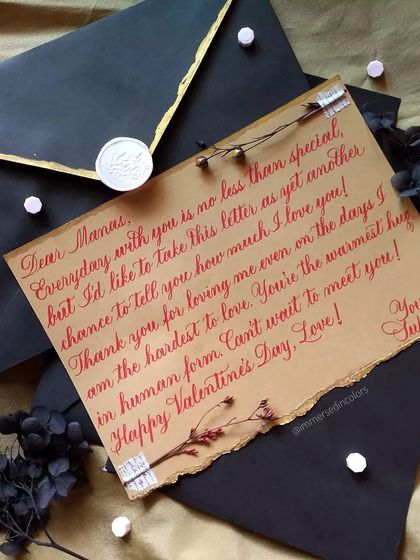 Dear Manas,
Everyday with you is no less than special,
but I'd like to take this letter as yet another
chance to tell you how much I love you!
Thank you for loving me even on the days I
am the hardest to love. You're the warmest hug
in human form. Can't wait to meet you!
Happy Valentine's Day, Love!
@immersedincolors